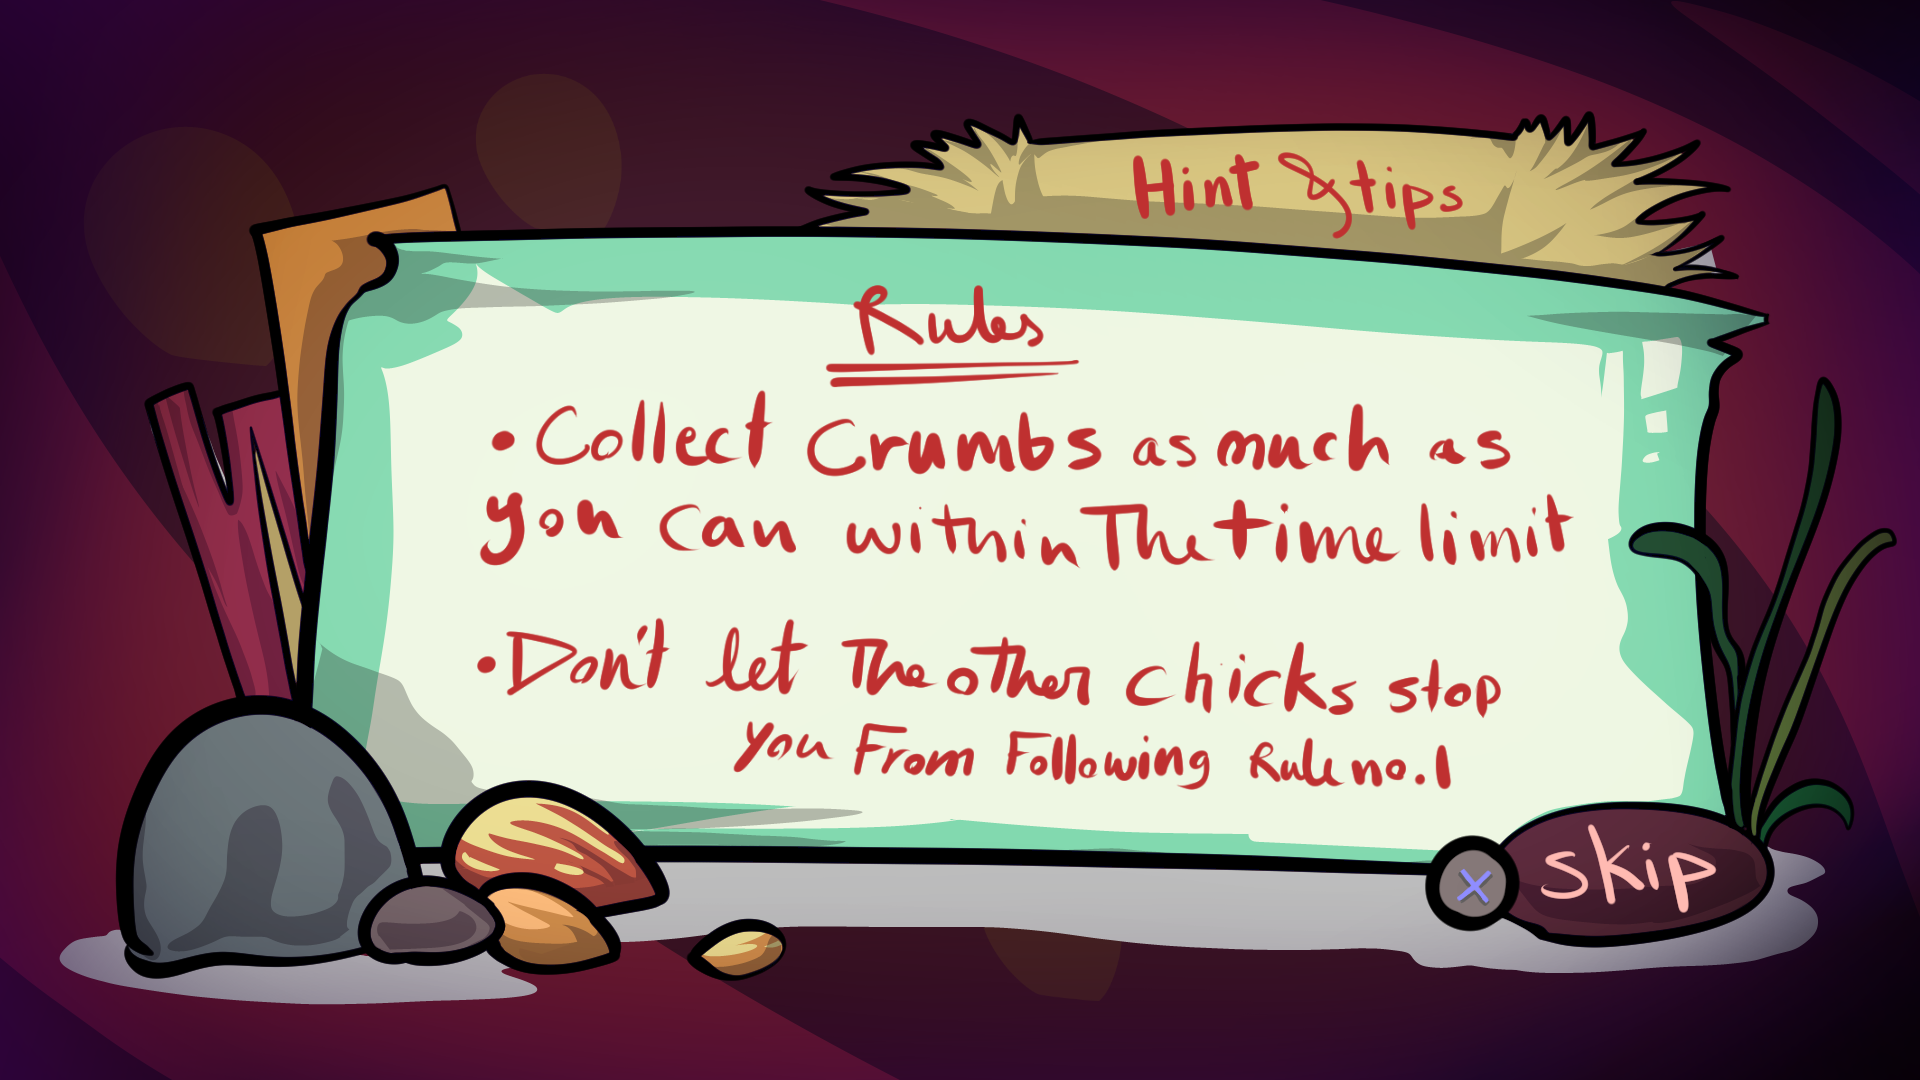 Hint & tips
Rules
• Collect Crumbs as much as
you can within The time limit
• Don't let The other chicks stop
you From Following Rule no.1
skip